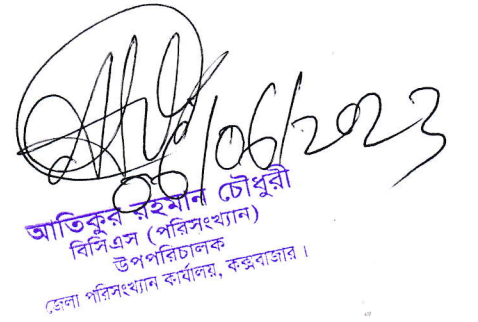 06/06/2023
আতিকুর রহমান চৌধুরী
বিসিএস (পরিসংখ্যান)
উপপরিচালক
জেলা পরিসংখ্যান কার্যালয়, কক্সবাজার।